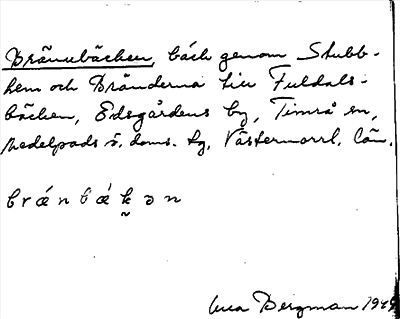 Brännbäcken, bäck genom Stubb-
hem och Bränderna till Fuldals-
bäcken, Edsgårdens by, Timrå sn,
Medelpads ö. doms. tg, Västernorrl. län.
brǽnbǽk̬ən
Bergman